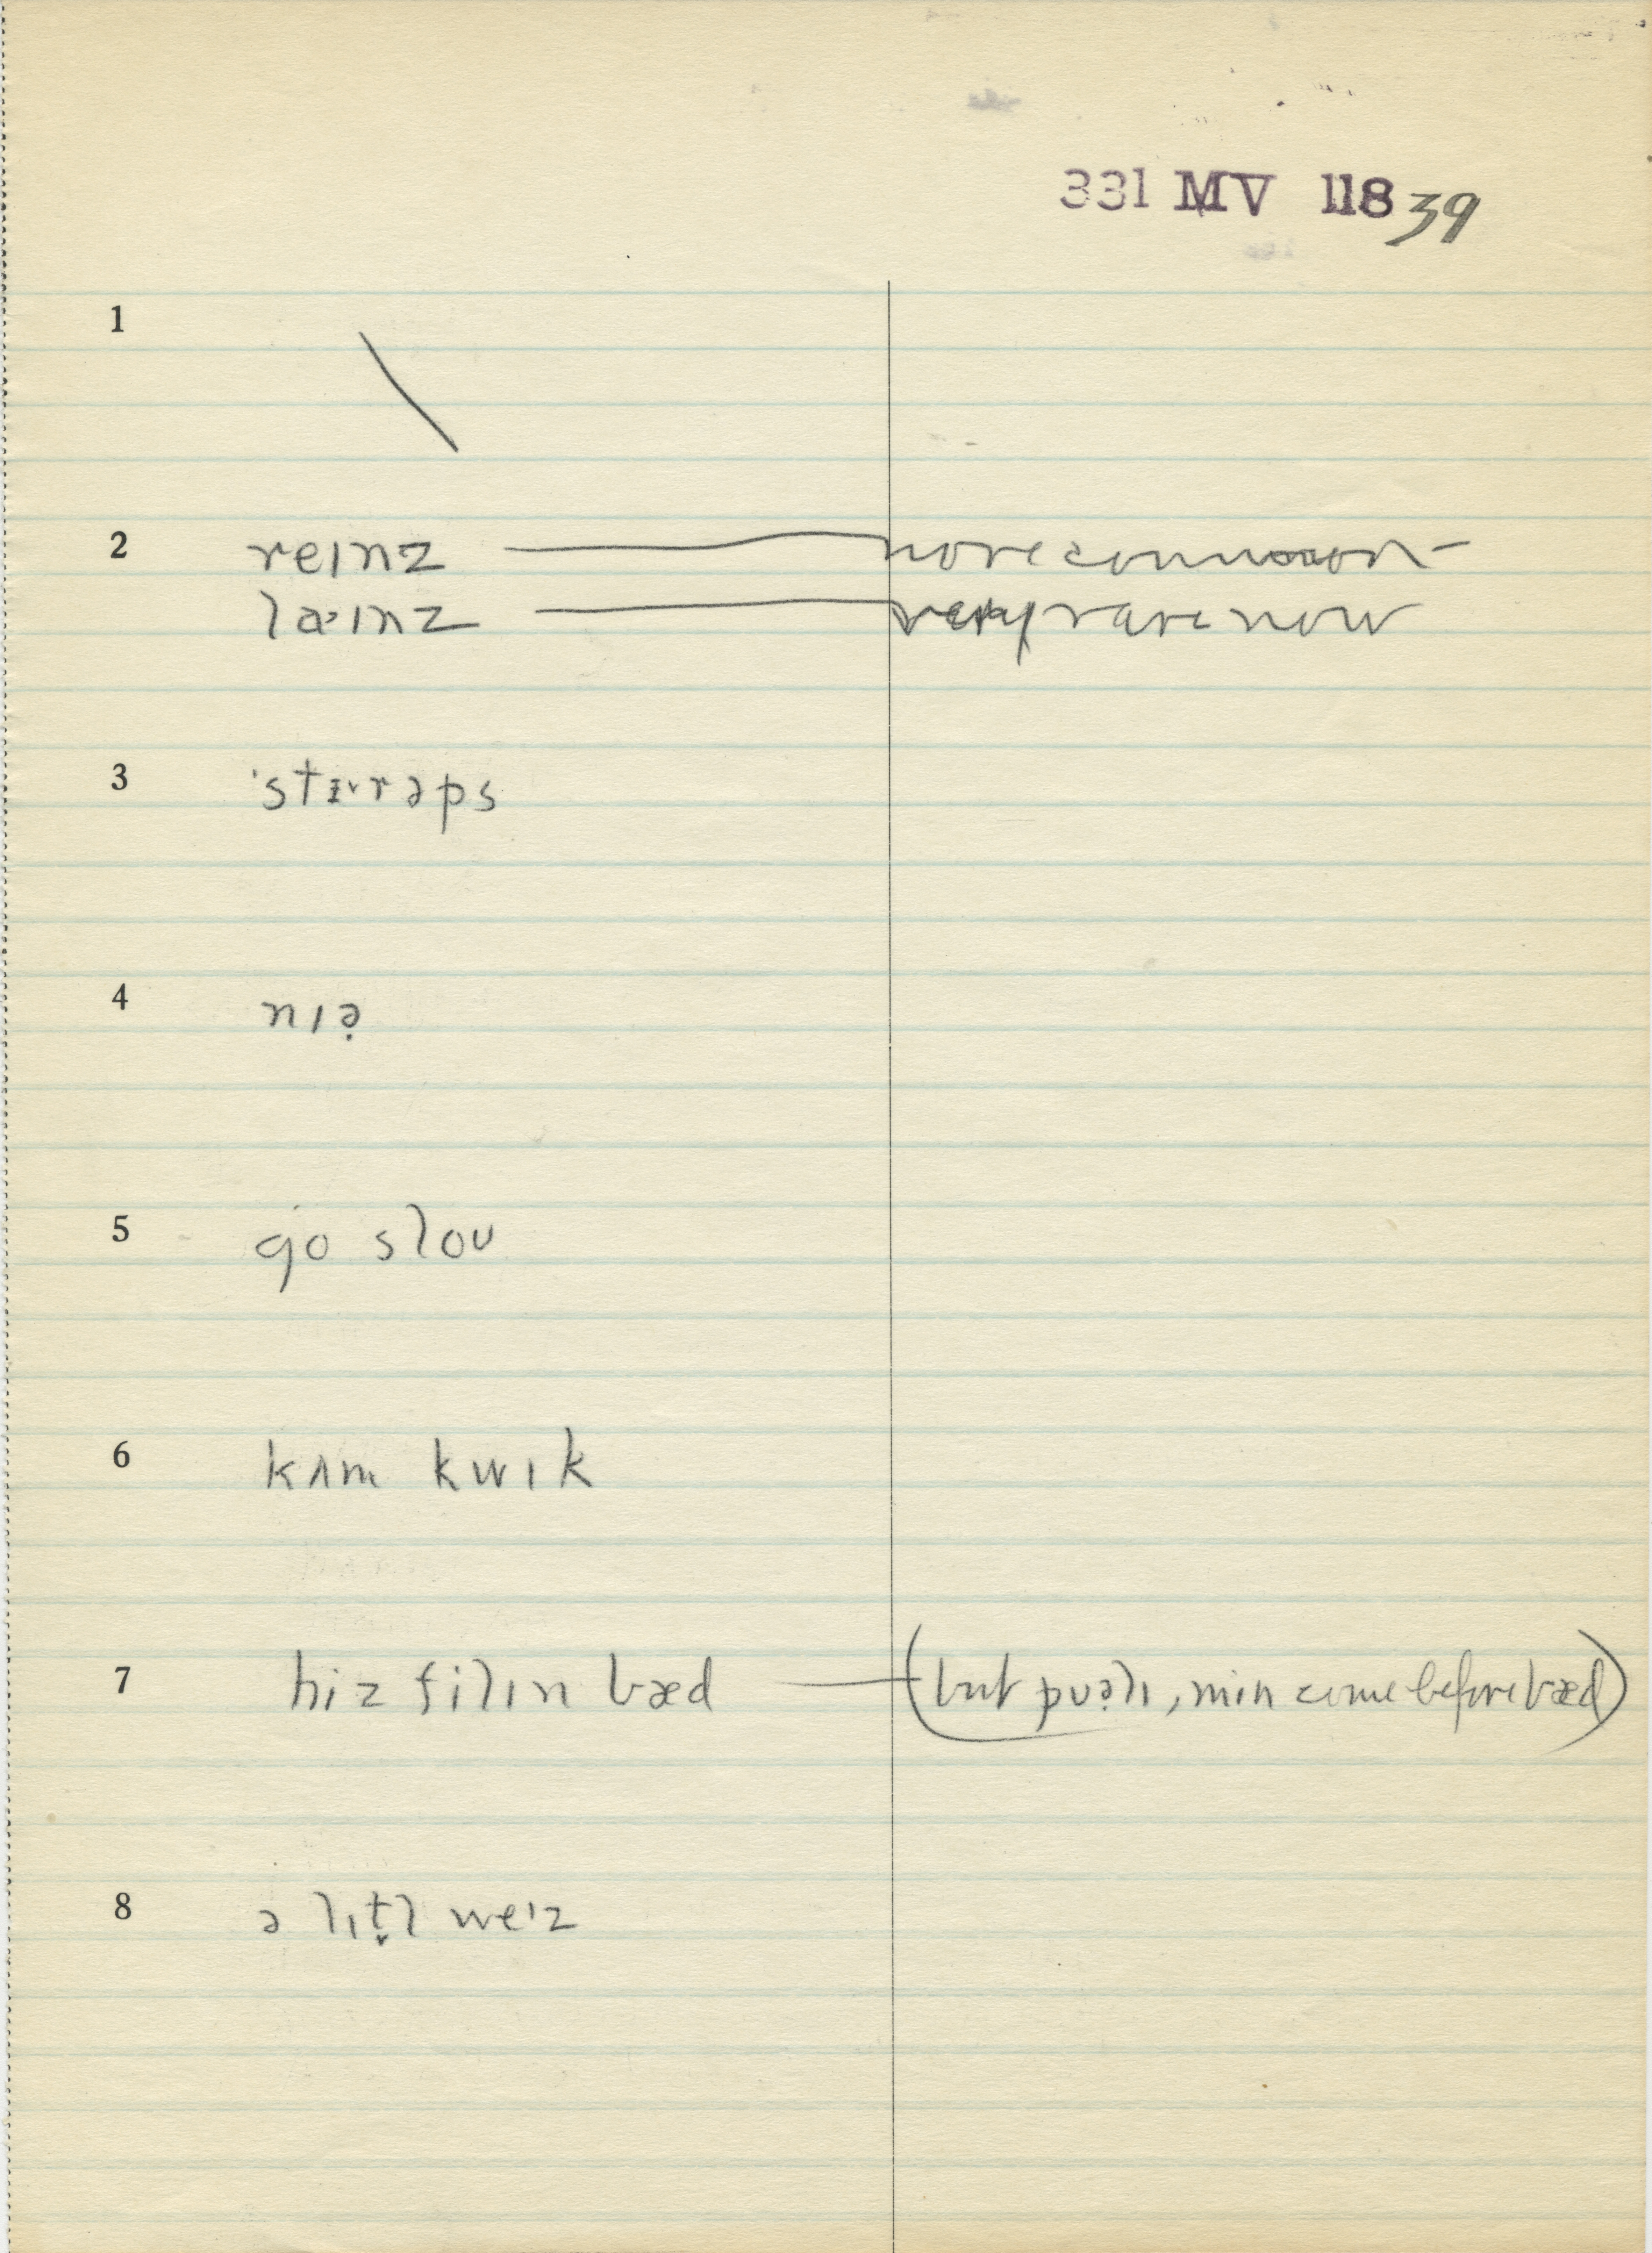 331 MV 118 39
1 \
2 reɪnz — more common —
laˑɪnz — very rare now
3 ˈstɪ˞rəps
4 nɪə̣
5 go sloʊ
6 kʌm kwɪk
7 hiz filɪn bæd — (but puə̣lɪ, min come before bæd)
8 ə lɪt̬l weˑɪz